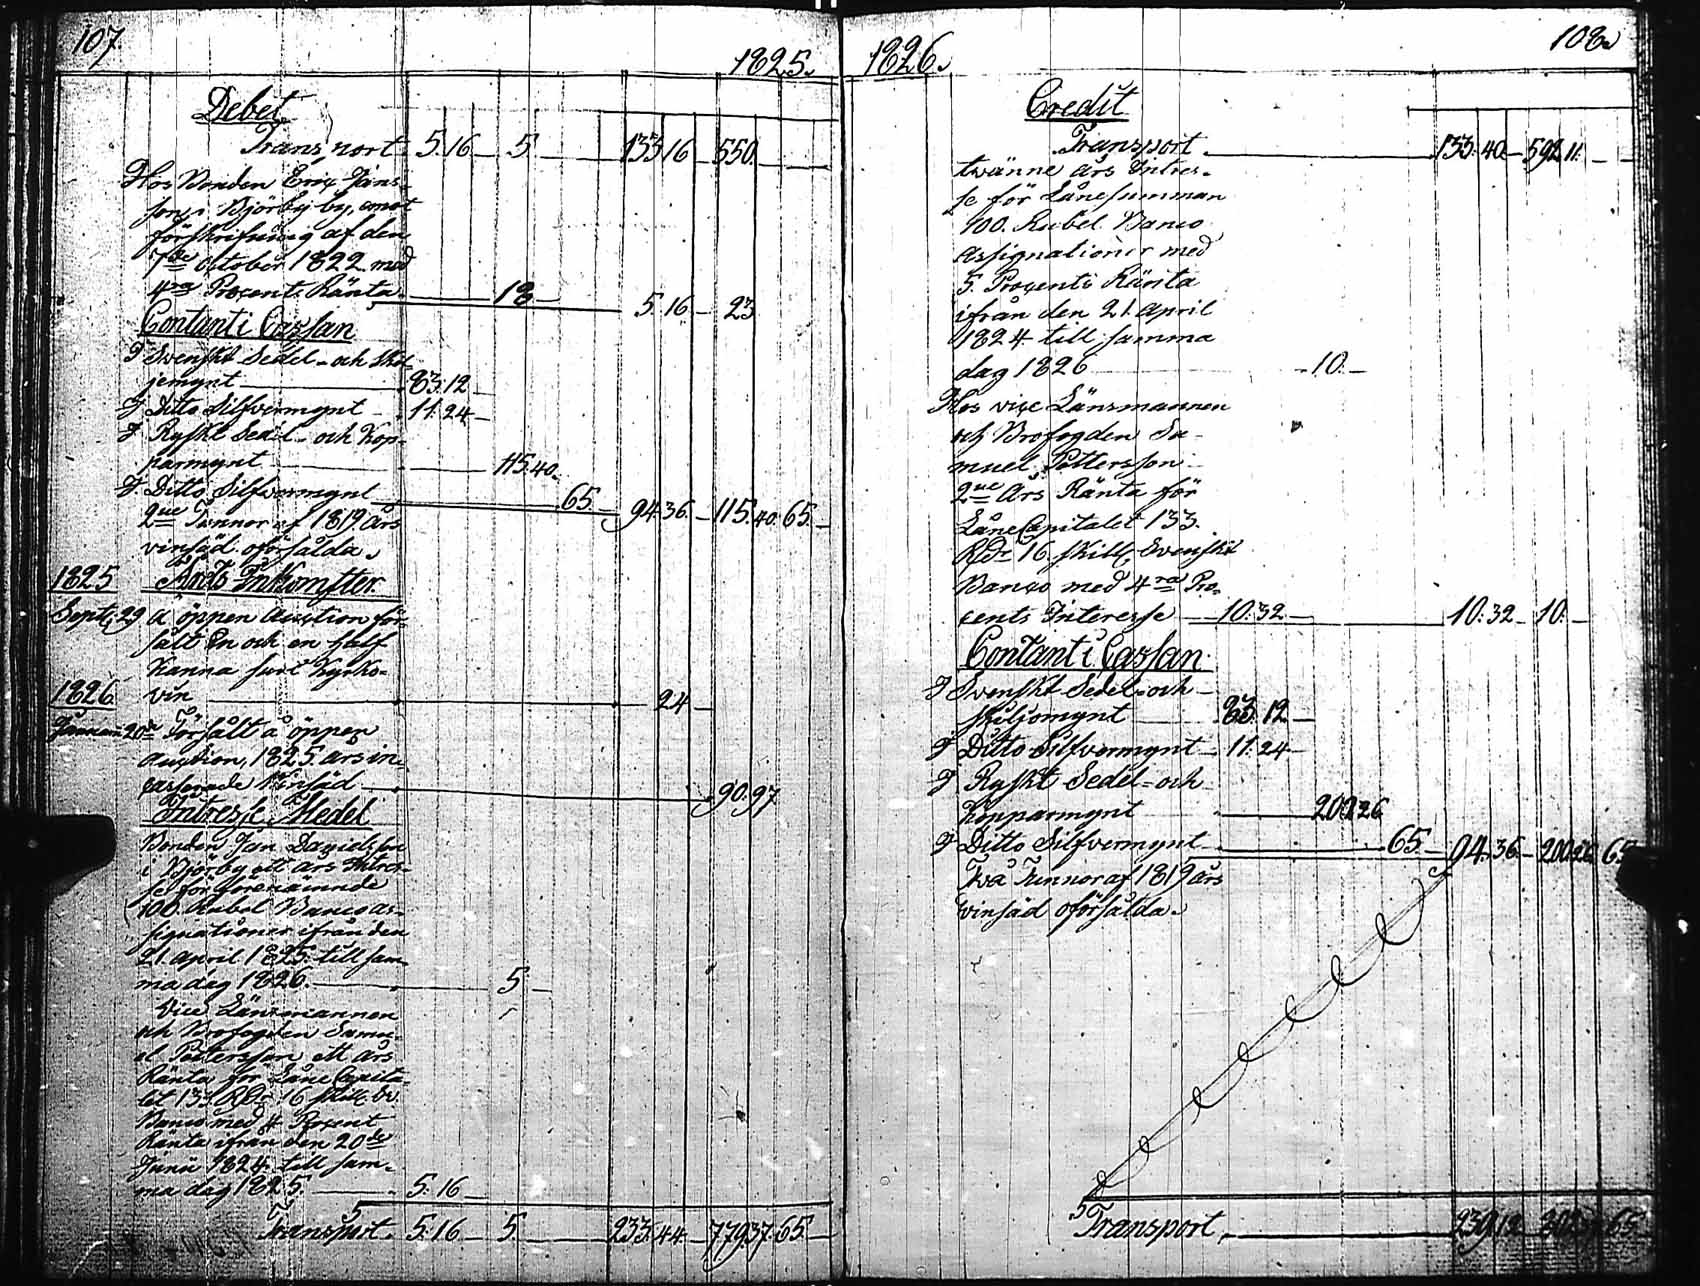 107
1825.
Debet
Transport. 5.16 5 133 16 550.
Hos Bonden Eric Jans-
son i Björby by, emot
förskrifning af den
7de October 1822 med
4ra Procents Ränta. 18 5.16 23
Contant i Cassan
I Svenskt Sedel- och Skil-
jemynt 83.12
I Ditto Silfvermynt 11.24
I Ryskt Sedel- och Kop-
parmynt 115.40.
I Ditto Silfvermynt 65. 94.36. 115.40. 65.
2ne Tunnor af 1819 års
vinsäd oförsålda.
1825 Årets Inkomster.
Sept. 29 å öppen Auction för-
sålt En och en half
Kanna surt Kyrko-
1826. vin 24
Januari 20de Försålt å öppen
auction, 1825 års in-
casserade Vinsäd 90.97
Intresse Medel
Bonden Jan Davidsson
i Björby ett års Intres-
se för förenämnde
100. Rubel Banco as-
signationer ifrån den
21 April 1825 till sam-
ma dag 1826. 5
Vice Länsmannen
och Brofogden Samu-
el Pettersson ett års
Ränta för Låne Capita-
let 133 Rdr 16 skill. Sv.
Banco med 4 Procent
Ränta ifrån den 20de
Junii 1824 till sam-
ma dag 1825. 5.16
Transport. 5.16 5 233.44. 779.37. 65.
108.
1826.
Credit
Transport. 133.40. 592.11.
twänne års Intres-
se för Lånesumman
100. Rubel Banco
Assignationer med
5. Procents Ränta
ifrån den 21. April
1824 till samma
dag 1826 10.
Hos vice Länsmannen
och Brofogden Sa-
muel Pettersson
2ne Års Ränta för
Låne Capitalet 133.
Rdr 16 skill. Svenskt
Banco med 4ra Pro-
cents Interesse 10.32 10.32 10.
Contant i Cassan.
I Svenskt Sedel- och
skiljomynt 83.12
I Ditto Silfvermynt 11.24
I Ryskt Sedel- och
Kopparmynt 200.26
I Ditto Silfvermynt 65. 94.36. 200.26 65
Två Tunnor af 1819 års
vinsäd oförsålda.
Transport, 239.12 65